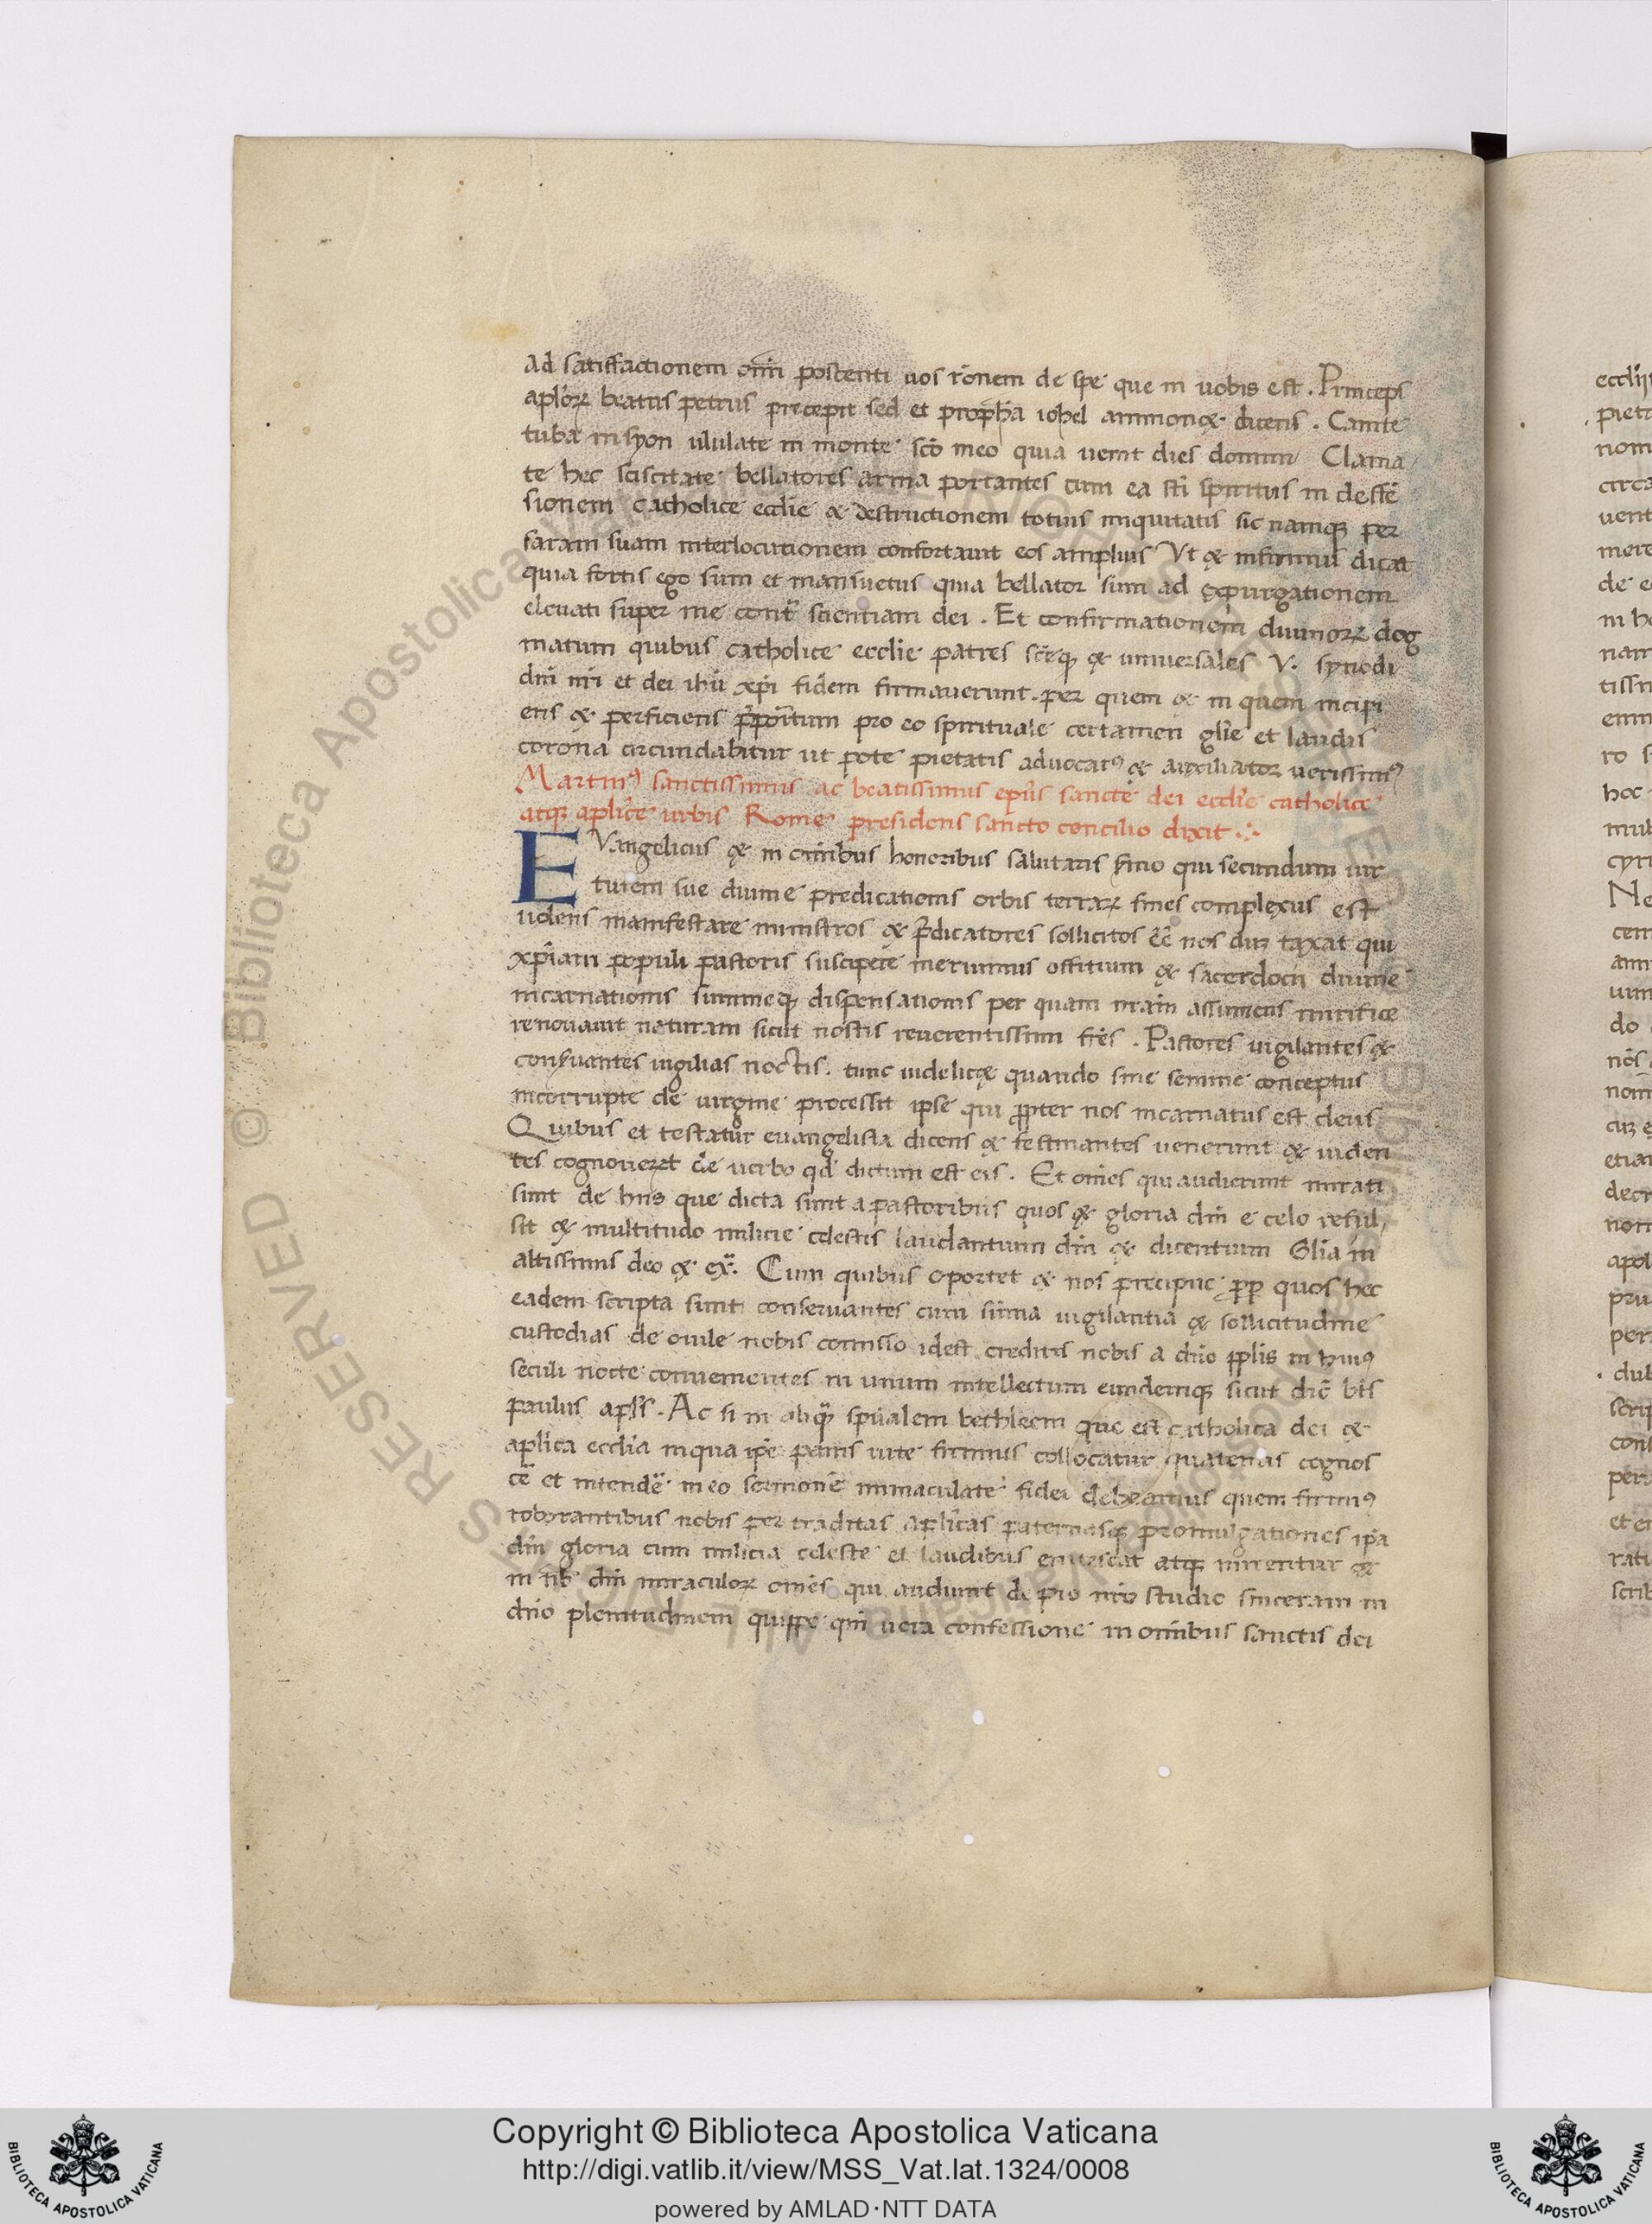 ad satiffactionem om̅i poscenti uos ro̅nem de spe que in uobis est . Princeps
aplo̅rꝝ beatus petrus precepit sed et propha̅ iohel ammonꝫ dicens . Canite
tuba in syon ululate in monte sco̅ meo quia uenit dies domini Clama
te hec sciscitate bellatores arma portantes cum ea sti̅ spiritus in deffe̅
sionem catholice ecclie & destructionem totius iniquitatis sic namqꝫ per
saram suam interlocutionem confortauit eos amplius Vt & infirmus dicat
quia fortis ego sum et mansuetus quia bellator sum ad expurgationem
eleuati super me cont̃ scientiam dei . Et confirmationem diuinorꝝ dog
matum quibus catholice ecclie patres sce̅qꝫ & uniuersales V. synodi
dn̅i nr̅i et dei ihu̅ xpi̅ fidem firmauerunt . per quem & in quem incipi
ens & perficiens pro eo spirituale certamen gl̅ie et laudis
corona circundabitur ut pote pietatis aduocatꝰ & auxiliator uerissimꝰ
Martinꝰ sanctissimus ac beatissimus epu̅s sancte dei eccli̅e catholice
atqꝫ aplic̅e urbis Rome presidens sancto concilio dixit ∴
EVangelicus & in om̅ibus honoribus salutaris s̅mo qui secundum uir
tutem sue diuine predicationis orbis terrarꝝ fines complexus est
uolens manifestare ministros & p̅dicatores sollicitos ee̅ nos duꝫ taxat qui
xp̅iani populi pastoris suscipere meruimus offitium & sacerdocii diuine
incarnationis summeqꝫ dispensationis per quam nr̅am assumens mirifice
renouauit naturam sicut nostis reuerentissimi fr̅es . Pastores uigilantes &
cons̅uantes uigilias noctis . tunc uidelicꝫ quando sine semine conceptus
incorrupte de uirgine processit ipse qui ꝓpter nos incarnatus est deus
Quibus et testatur euangelista dicens & festinantes uenerunt & uiden
tes cognouerꝫt de uerbo qd̅ dictum est eis . Et om̅es qui audierunt mirati
sunt de hiis que dicta sunt a pastoribus quos & gloria dn̅i e celo reful
sit & multitudo milicie celestis laudantium dn̅i & dicentium Gli̅a in
altissimis deo & ex̃. Cum quibus oportet & nos precipue ꝓp quos hec
eadem scripta sunt conseruantes cum su̅ma uigilantia & sollicitudine
custodias de ouile nobis comisso idest creditis nobis a dn̅o pplis in huiꝰ
seculi nocte conuenientes in unum intellectum eundemqꝫ sicut dic̅ bt̅s
paulus apl̅s . Ac si in aliqꝫ spu̅alem bethleem que est catholica dei &
aplica eccl̅ia in qua ip̅e panis uite firmius collocatur quatenus cognos
ce̅ et intende̅ in eo sermone̅ immaculate fidei debeamus quem firmiꝰ
roborantibus nobis per traditas aplicas paternasqꝫ promulgationes ip̅a
dn̅i gloria cum milicia celeste et laudibus enitescat atqꝫ mirentur &
in dn̅i miraculorꝝ om̅es qui audiunt de pio nr̅o studio sinceram in
dn̅o plenitudinem quippe qn̅i uera confessione in om̅ibus sanctis dei
Copyright © Biblioteca Apostolica Vaticana
http://digi.vatlib.it/view/MSS_Vat.lat.1324/0008
powered by AMLAD·NTT DATA